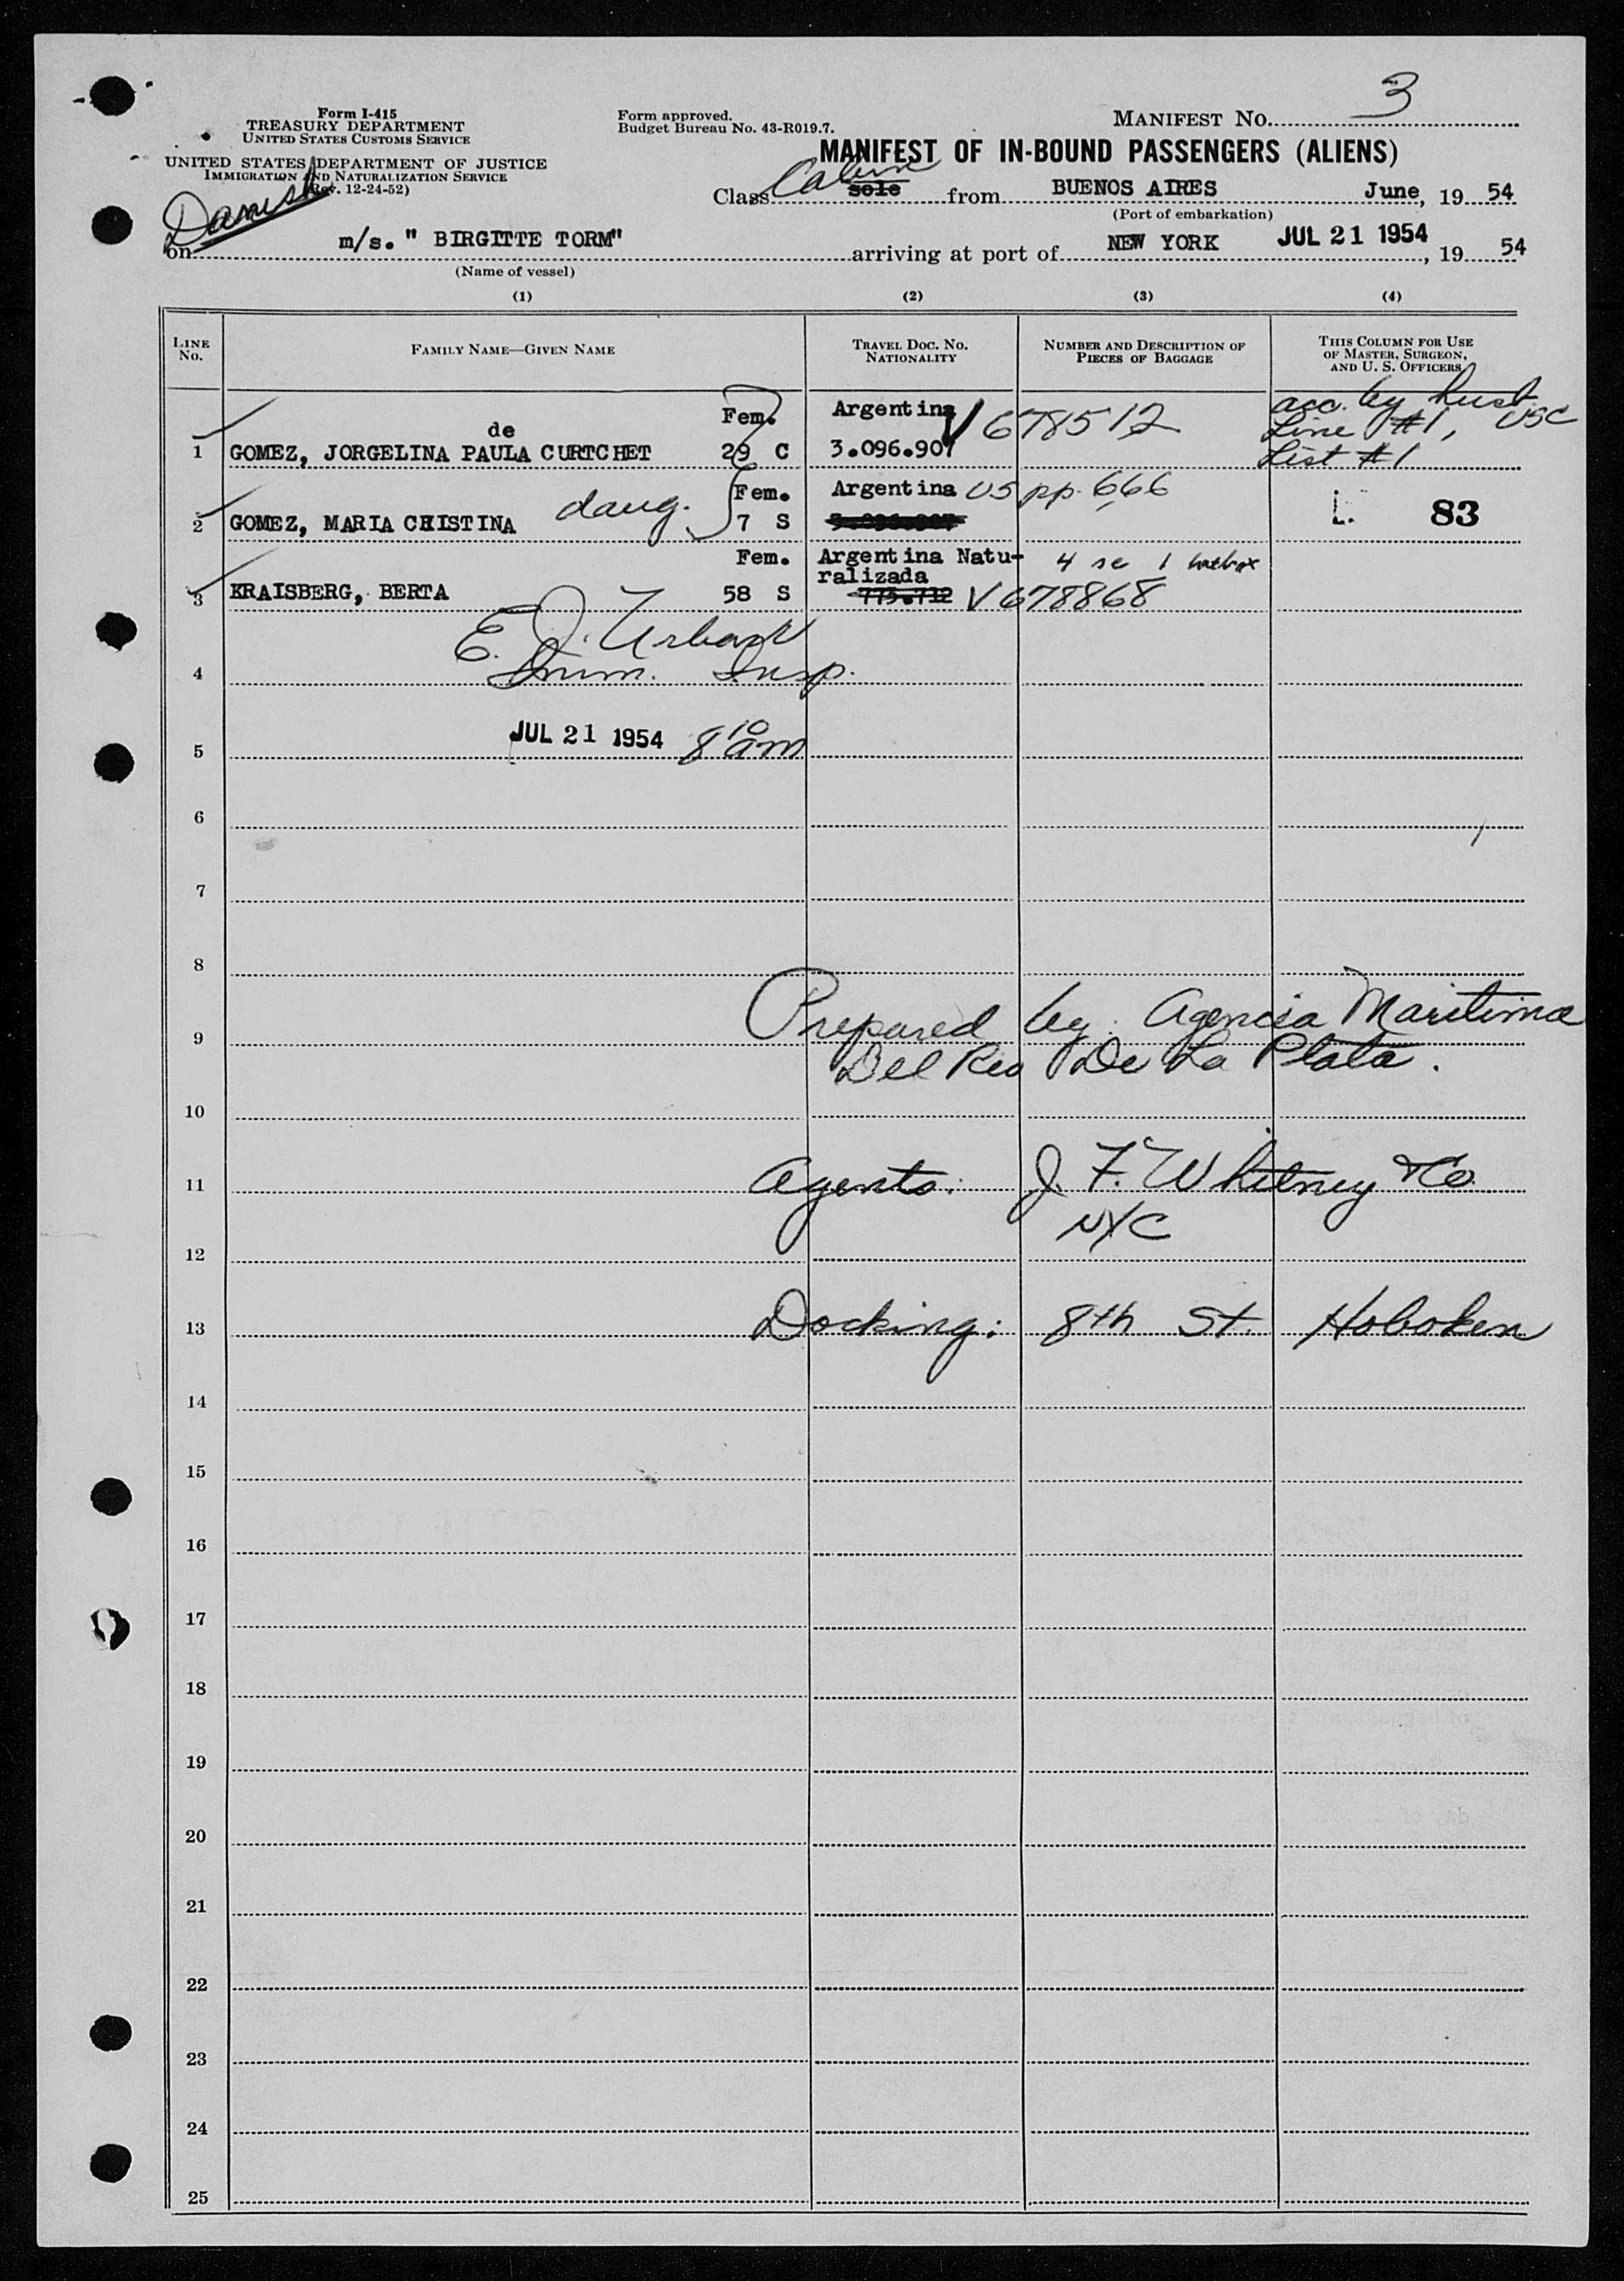 3
Form I-415
TREASURY DEPARTMENT
UNITED STATES CUSTOMS SERVICE
Form approved.
Budget Bureau No. 43-R019.7.
MANIFEST NO.
UNITED STATES DEPARTMENT OF JUSTICE
IMMIGRATION AND NATURALIZATION SERVICE
(Rev. 12-24-52)
MANIFEST OF IN-BOUND PASSENGERS (ALIENS)
Class Cabin sole from BUENOS AIRES June, 19 54
(Port of embarkation)
Danish
on m/s. " BIRGITTE TORM" arriving at port of NEW YORK JUL 21 1954, 19 54
(Name of vessel)
(1) (2) (3) (4)
LINE No. FAMILY NAME—GIVEN NAME TRAVEL DOC. NO. NATIONALITY NUMBER AND DESCRIPTION OF PIECES OF BAGGAGE THIS COLUMN FOR USE OF MASTER, SURGEON, AND U. S. OFFICERS
Fem. Argentina V678512 acc. by husb.
de Line #1, USC
1 GOMEZ, JORGELINA PAULA CURTCHET 29 C 3.096.907 List #1
Fem. Argentina US pp. 666
2 GOMEZ, MARIA CHISTINA daug. 7 S L. 83
Fem. Argentina Natu- 4 sc 1
ralizada
3 KRAISBERG, BERTA 58 S 775.712 V678868
E. J. Urbank
4 Imm. Insp.
5 JUL 21 1954 8 10 am
6
7
8
9 Prepared by: Agencia Maritima
Del Rio De La Plata.
10
11 Agents: J. F. Whitney & Co.
NYC
12
13 Docking: 8th St. Hoboken
14
15
16
17
18
19
20
21
22
23
24
25